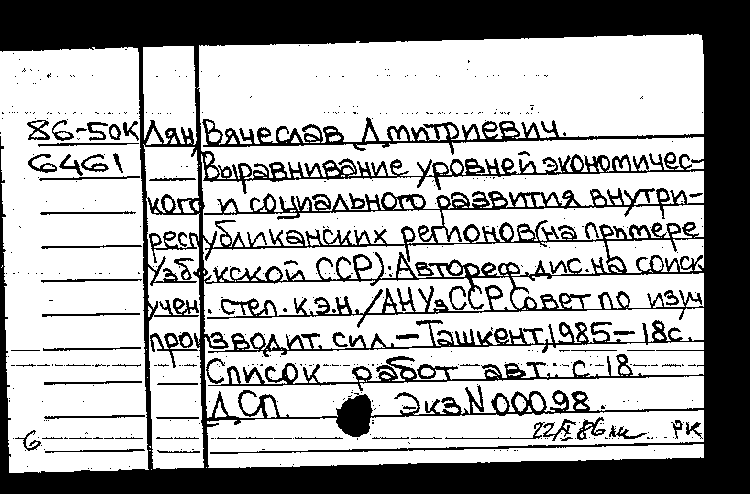 86-50к Лян, Вячеслав Дмитриевич.
6461 Выравнивание уровней экономичес-
кого и социального развития внутри-
республиканских регионов (на примере
Узбекской ССР): Автореф. дис. на соиск
учен. степ. к.э.н. / АН УзССР. Совет по изуч
производит. сил. — Ташкент, 1985. — 18с.
Список работ авт.: с. 18.
ДСП. Экз. N 00098.
6 86 РК